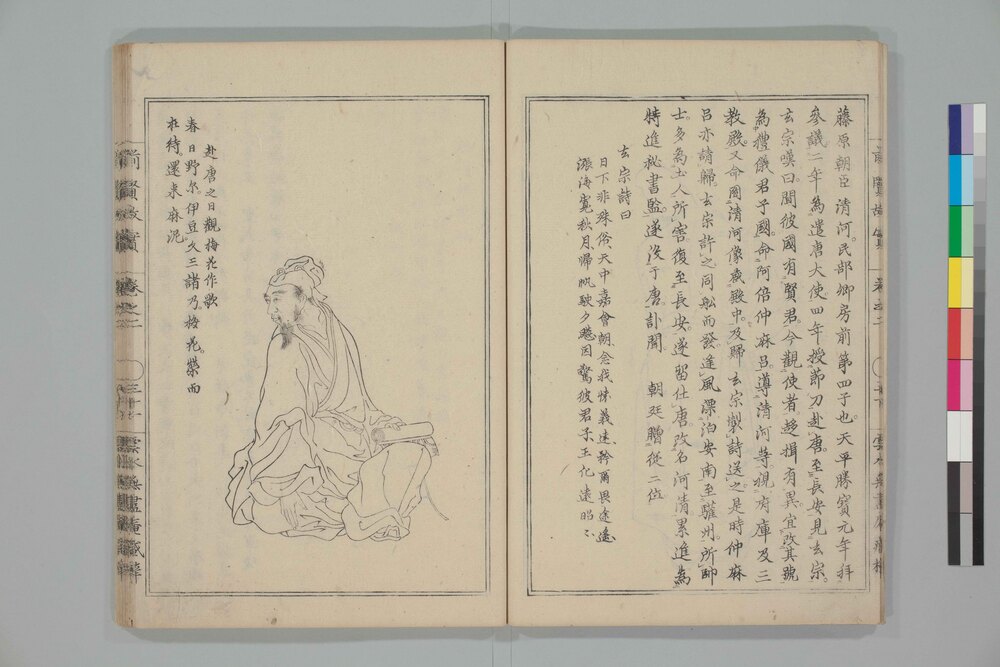 藤原朝臣 清河。民部卿房前第四子也。天平勝寳元年拝
參議。二年為遣唐大使。四年授節刀赴唐。至長安見玄宗。
玄宗嘆曰。聞彼國有賢君。今觀使者趍揖有異。宜改其號
為禮儀君子國。命阿倍仲麻呂。導清河等。視府庫及三
教殿。又命圖清河像蔵殿中。及歸。玄宗製詩送之。是時仲麻
呂亦請歸。玄宗許之。同船而發。逢風漂泊安南。至驩州。所部
士。多為土人所害。復至長安。遂留仕唐。改名河清。累進為
特進秘書監。遂没于唐。訃聞 朝廷贈從二位
玄宗詩曰
日下非殊俗。天中嘉會朝。念我懐義遠。矜爾畏途遙。
漲海寛秋月。歸帆駛夕飈。因驚彼君子。王化遠昭々
赴唐之日觀梅花作歌
春日野尓。伊豆久三諸乃。梅花。榮而
在待。還来麻泥。
前賢故實 巻之二
雲水無盡庵蔵